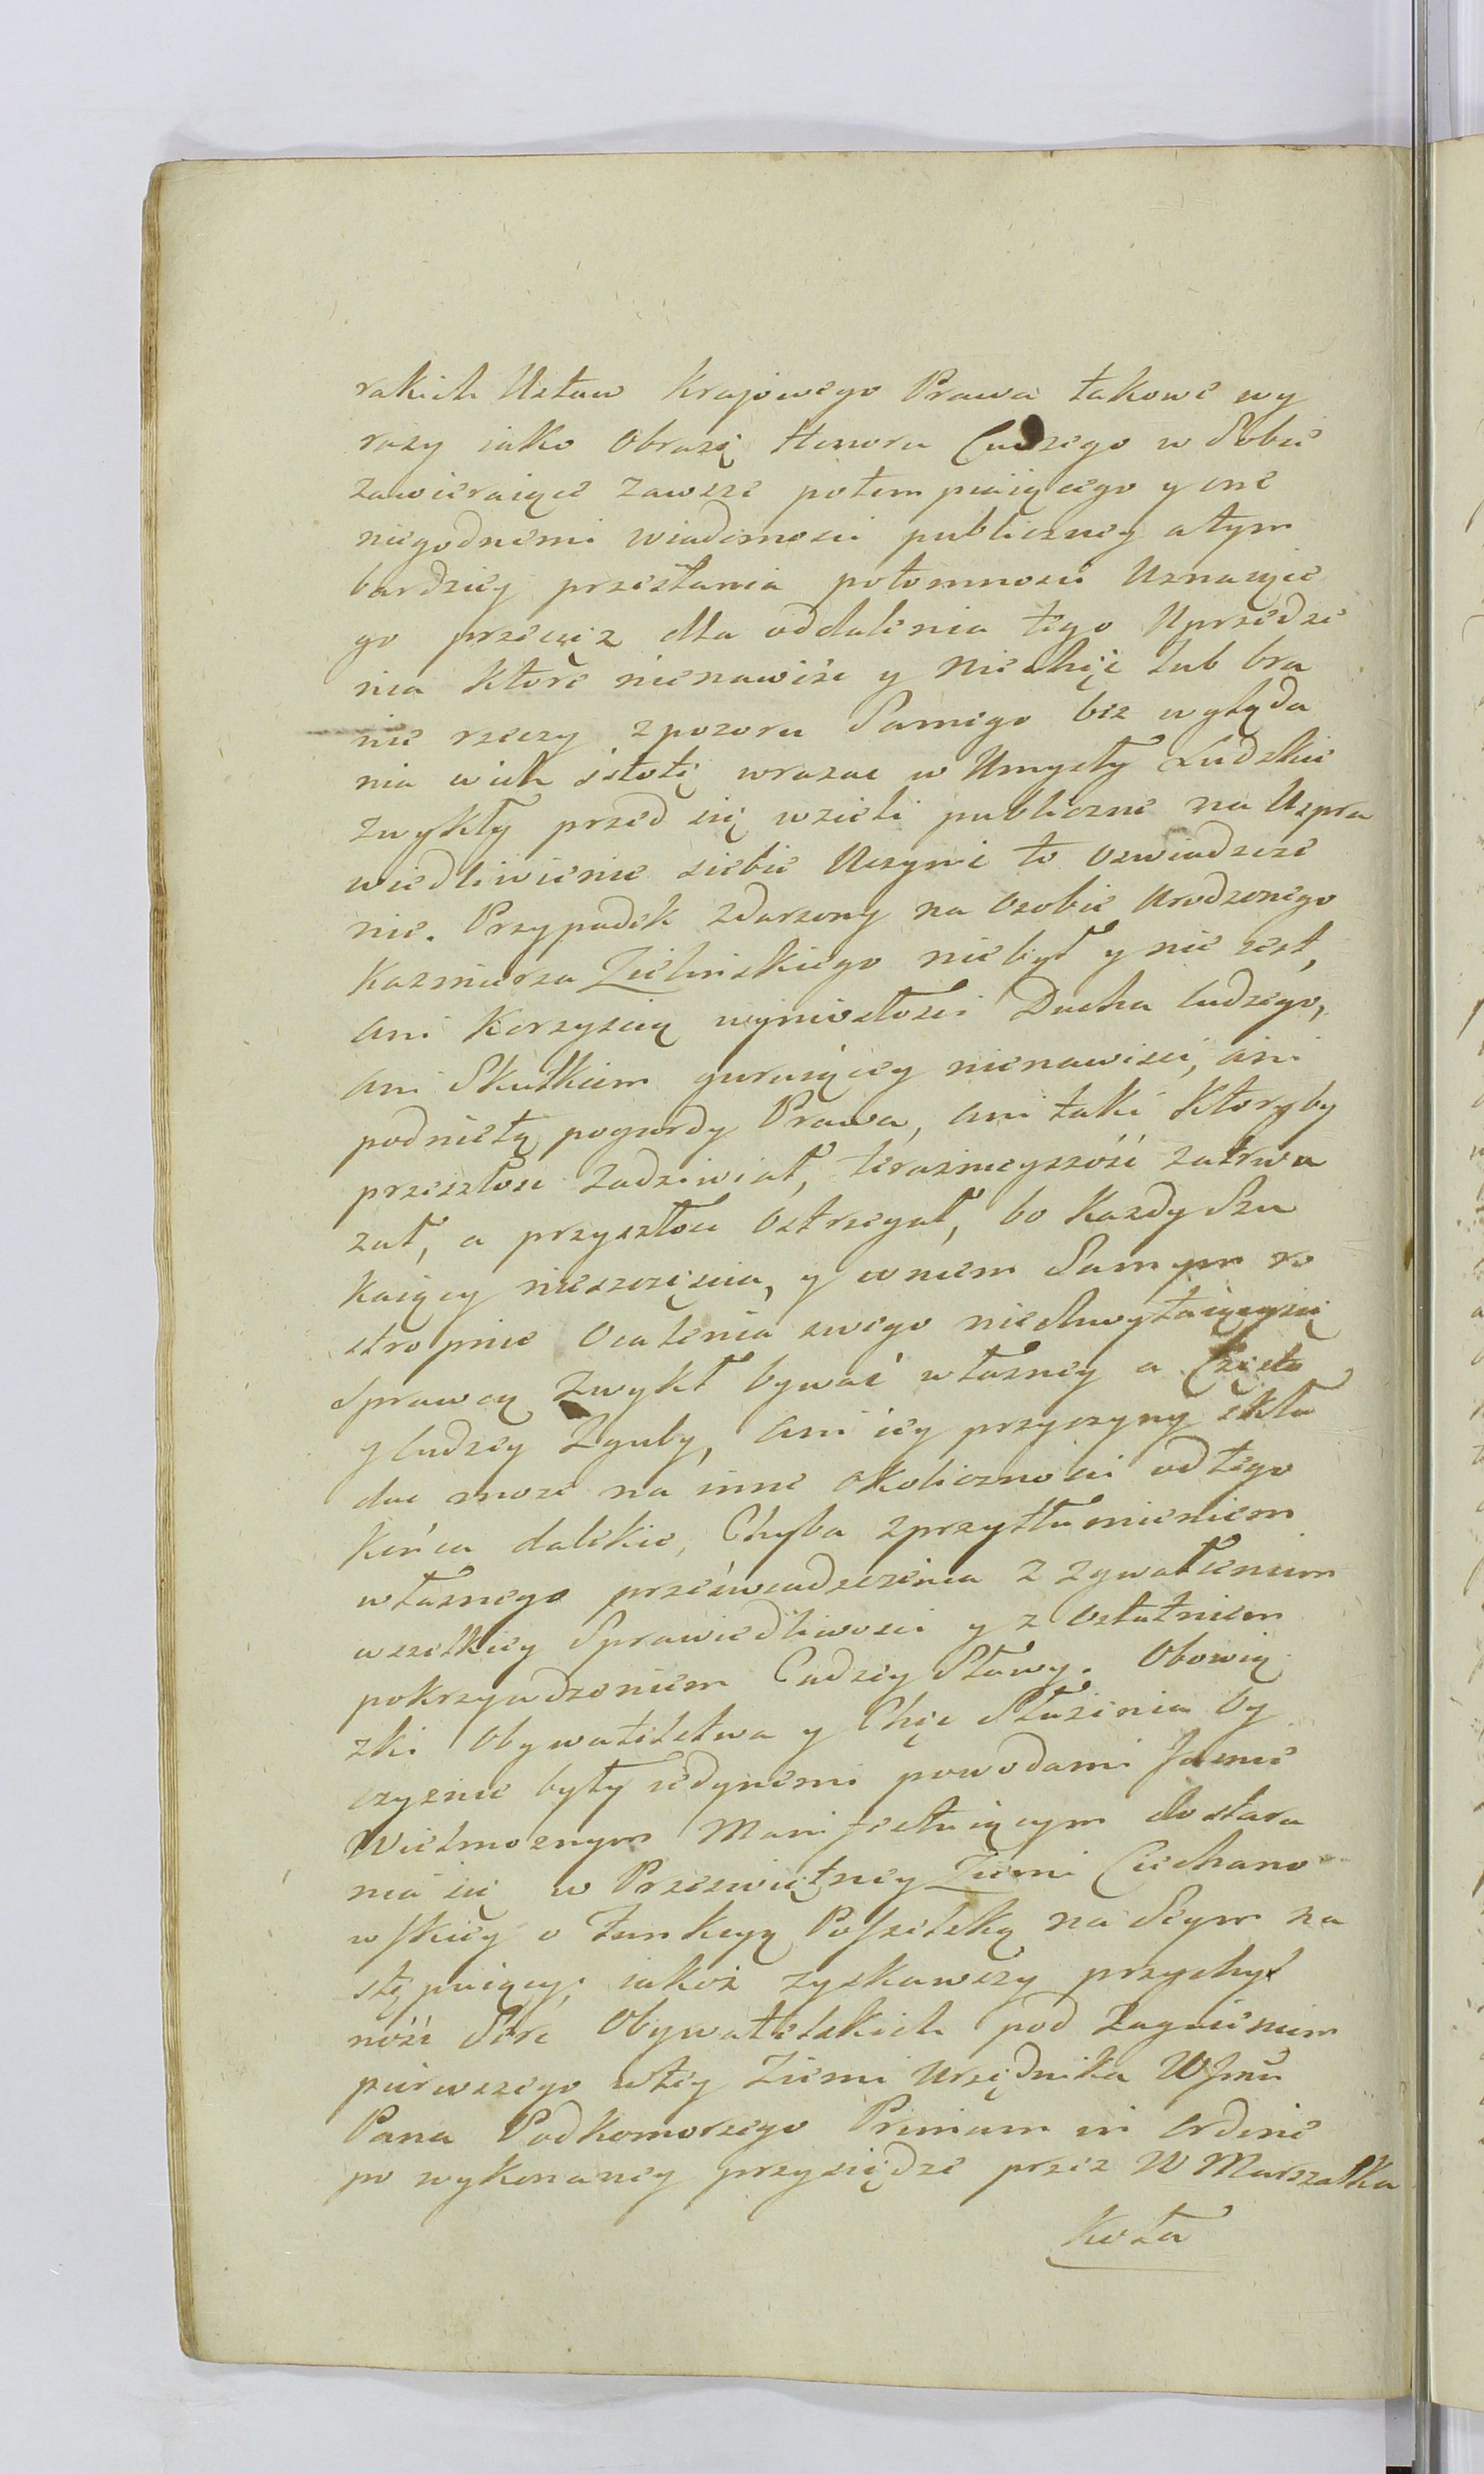 rakich Ustaw Krajowego Prawa takowe wy
razy iako obrazę Honoru Cudzego w Sobie
zawieraiące zawsze potempiaiącego y one
niegodnemi wiadomosci publiczney a tym
bardziey przesłania potomnosci Uznaiące
go przeciez dla oddalenia tego Uprzedze
nia które nienawiśc y Niechęć lub bra
nie rzeczy z pozoru Samego bez wgląda
nia w ich istotę wrazac w Umysły Ludzkie
zwykły przed się wzieli publiczne na Uspra
wiedliwienie siebie Uczynic to oswiadcze
nie. Przypadek zdarzony na osobie Urodzonego
Kazmierza Zielinskiego nie był y nie iest,
ani Korzyscią wyniosłosci Ducha ludzego,
ani Skutkiem goraiącey nienawisci, ani
podnietą pogardy Prawa, ani taki Któryby
przeszłosc zadziwiał, teraznieyszość zatrwa
zał, a przyszłosc ostrzegał, bo Kazdy Szu
kaiący nieszczęscia, y w niem Samym ro
stropnie Ocalenia swego niechwytaiącysię
Sprawcą zwykł bywać własney a Często
y ludzey Zguby, ani iey przyczyny skła
dac moze na inne okolicznosci od tego
końca dalekie, Chyba z przytłumieniem
własnego przeświadczenia z zgwałceniem
wszelkiey Sprawiedliwosci y z ostatniem
pokrzywdzeniem Cudzey Sławy. Obowią
zki Obywatelstwa y Chęc Służenia Oy
czyznie były iedynemi powodami Jasnie
Wielmoznym Manifestuiącym do stara
nia się w Przeswiętney Ziemi Ciechano
wskiey o funkcyą Poselską na Seym na
stępuiący; iakoż zyskawszy przychyl
ność Serc Obywatelskich pod zagaieniem
pierwszego w tey Ziemi Urzędnika WJmci
Pana Podkomorzego Primum in ordine
po wykonaney przysiędze przez W Marszałka
Koła